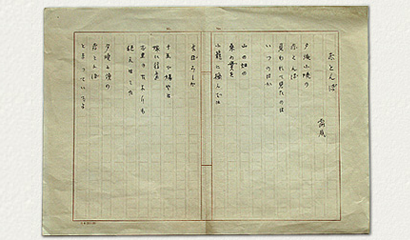 赤とんぼ
露風
夕焼小焼の
赤とんぼ
負われて見たのは
いつの日か
山の畑の
桑の実を
小籠に摘んだは
まぼろしか
十五で姐やは
嫁に行き
お里のたよりも
絶えはてた
夕焼小焼の
赤とんぼ
とまっているよ